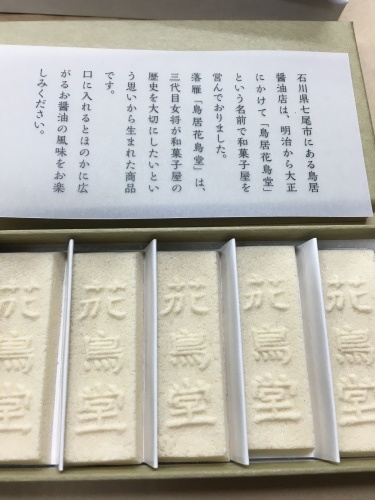 石川県七尾市にある鳥居
醤油店は、明治から大正
にかけて「鳥居花鳥堂」
という名前で和菓子屋を
営んでおりました。
落雁「鳥居花鳥堂」は、
三代目女将が和菓子屋の
歴史を大切にしたいとい
う思いから生まれた商品
です。
口に入れるとほのかに広
がるお醤油の風味をお楽
しみください。
花鳥堂
花鳥堂
花鳥堂
花鳥堂
花鳥堂